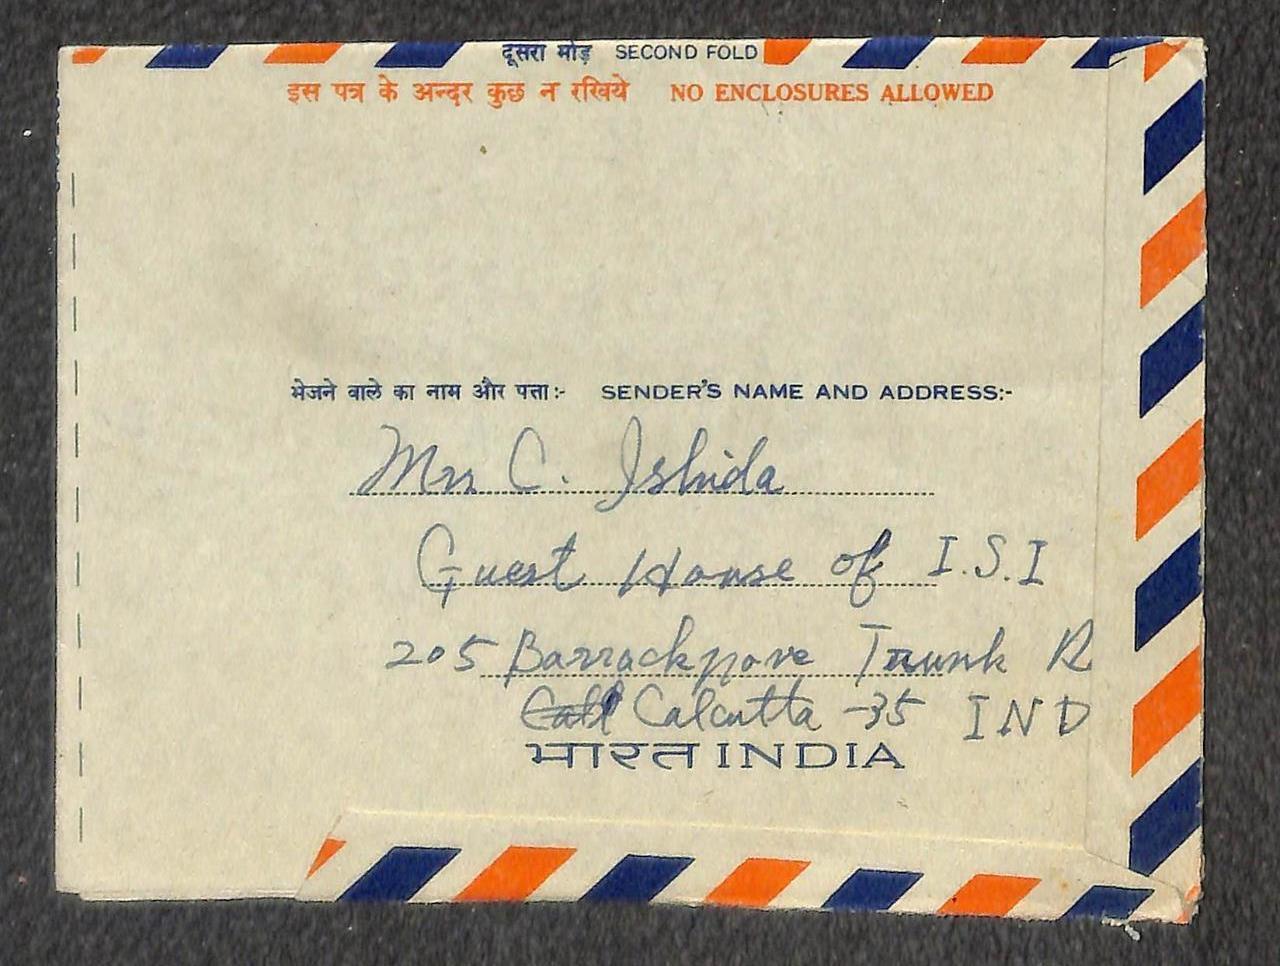 दूसरा मोड़ SECOND FOLD
इस पत्र के अन्दर कुछ न रखिये NO ENCLOSURES ALLOWED
भेजने वाले का नाम और पत्ता:- SENDER'S NAME AND ADDRESS:-
Mrs C. Ishida
Guest House of I.S.I
205 Barrackpore Trunk R
Calcutta -35 IND
भारत INDIA